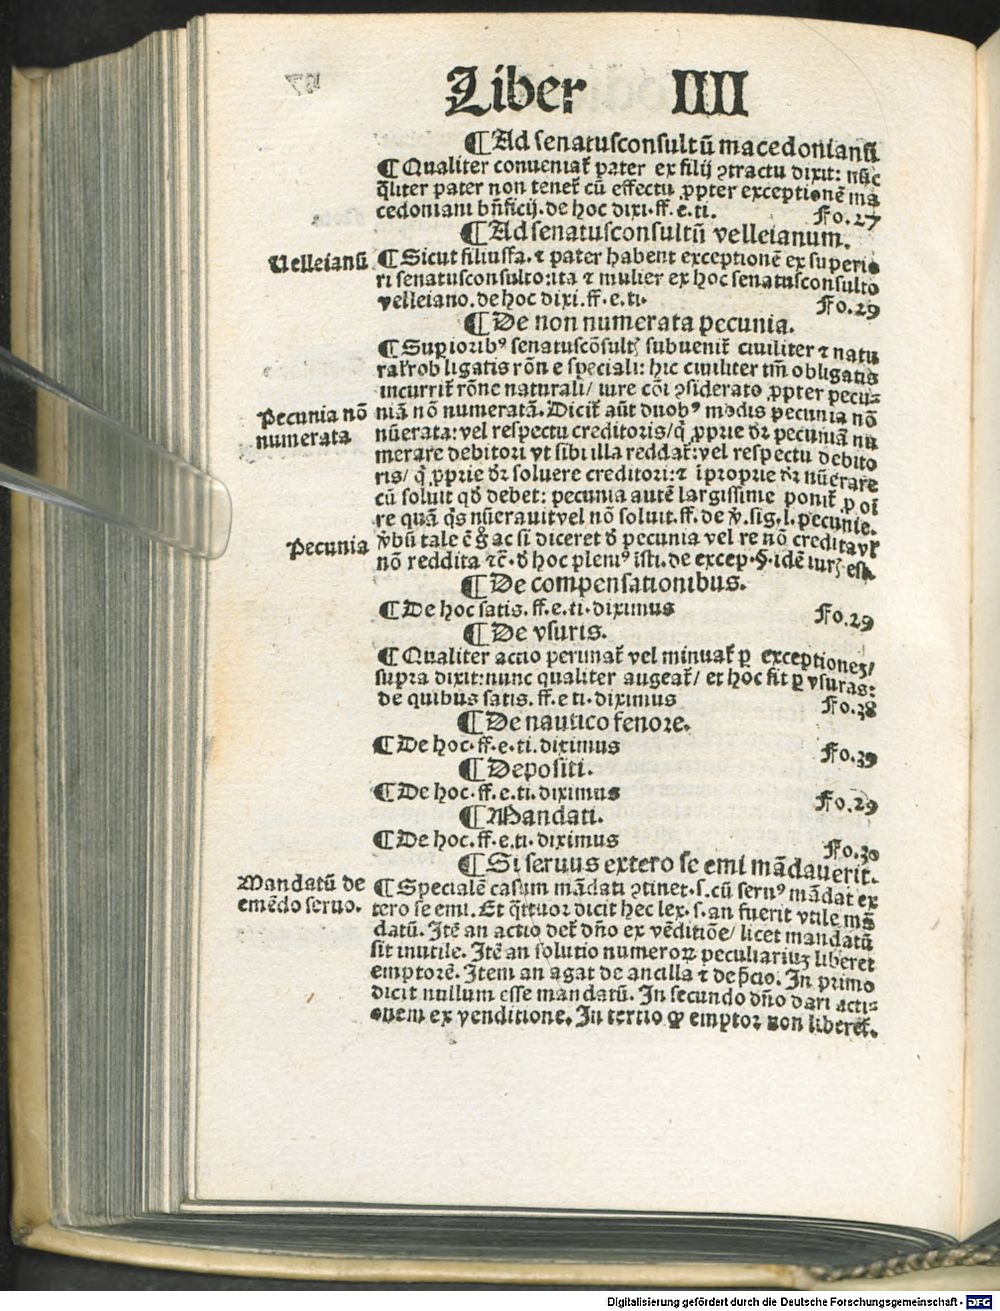 Liber IIII
¶ Ad senatusconsultū macedonianū.
¶ Qualiter conueniat᷑ pater ex filij ꝯtractu dixit: nūc
q̄liter pater non tenet᷑ cū effectu ꝓpter exceptionē ma
cedoniani bn̄ficij. de hoc dixi. ff. e. ti. Fo.27
¶ Ad senatusconsultū velleianum.
Velleianū
¶ Sicut filiusfa. ⁊ pater habent exceptionē ex superio
ri senatusconsulto: ita ⁊ mulier ex hoc senatusconsulto
velleiano. de hoc dixi. ff. e. ti. Fo.29
¶ De non numerata pecunia.
¶ Supioribꝰ senatuscōsultꝭ subuenit᷑ ciuiliter ⁊ natu
ral᷑r obligatis rōn e speciali: hic ciuiliter tm̄ obligatis
incurrit᷑ rōne naturali/ iure cōi ꝯsiderato ꝓpter pecu⸗
Pecunia nō
numerata
niā nō numeratā. Dicit᷑ aūt duobꝰ modis pecunia nō
nūerata: vel respectu creditoris/ q̄ ꝓprie dr̄ pecuniā nu
merare debitori vt sibi illa reddat᷑: vel respectu debito
ris/ q̄ ꝓprie dr̄ soluere creditori: ⁊ īproprie dr̄ nūerare
cū soluit qđ debet: pecunia autē largissime ponit᷑ ꝓ oī
re quā q̄s nūerauit vel nō soluit. ff. de v̄. sig. l. pecunie.
Pecunia
v̄bū tale ē g̊ ac si diceret đ pecunia vel re nō credita vl᷑
nō reddita ⁊c̄. đ hoc pleniꝰ isti. de excep. §. idē iurꝭ est.
¶ De compensationibus.
¶ De hoc satis. ff. e. ti. diximus Fo.29
¶ De vsuris.
¶ Qualiter actio perimat᷑ vel minuat᷑ ꝑ exceptioneꝫ/
supra dixit: nunc qualiter augeat᷑/ et hoc fit ꝑ vsuras:
de quibus satis. ff. e ti. diximus Fo.28
¶ De nautico fenore.
¶ De hoc. ff. e. ti. diximus Fo.29
¶ Depositi.
¶ De hoc. ff. e. ti. diximus Fo.29
¶ Mandati.
¶ De hoc. ff. e. ti. diximus Fo.30
¶ Si seruus extero se emi mādauerit.
Mandatū de
emēdo seruo.
¶ Specialē casum mādati ꝯtinet. s. cū seruꝰ mādat ex
tero se emi. Et q̄ttuor dicit hec lex. s. an fuerit vtile mā
datū. Itē an actio det᷑ dn̄o ex vēditiōe/ licet mandatū
sit inutile. Itē an solutio numeroꝝ peculiariuꝫ liberet
emptorē. Item an agat de ancilla ⁊ de p̄cio. In primo
dicit nullum esse mandatū. In secundo dn̄o dari acti⸗
onem ex venditione. In tertio ꝙ emptor non liberet᷑.
Digitalisierung gefördert durch die Deutsche Forschungsgemeinschaft - DFG